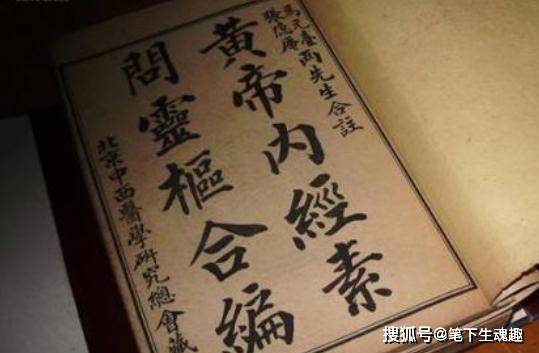 馬元臺
張隱庵
兩先生合註
黃帝內經素
問靈樞合編
北京中西醫學研究總會藏
搜狐号@笔下生魂趣